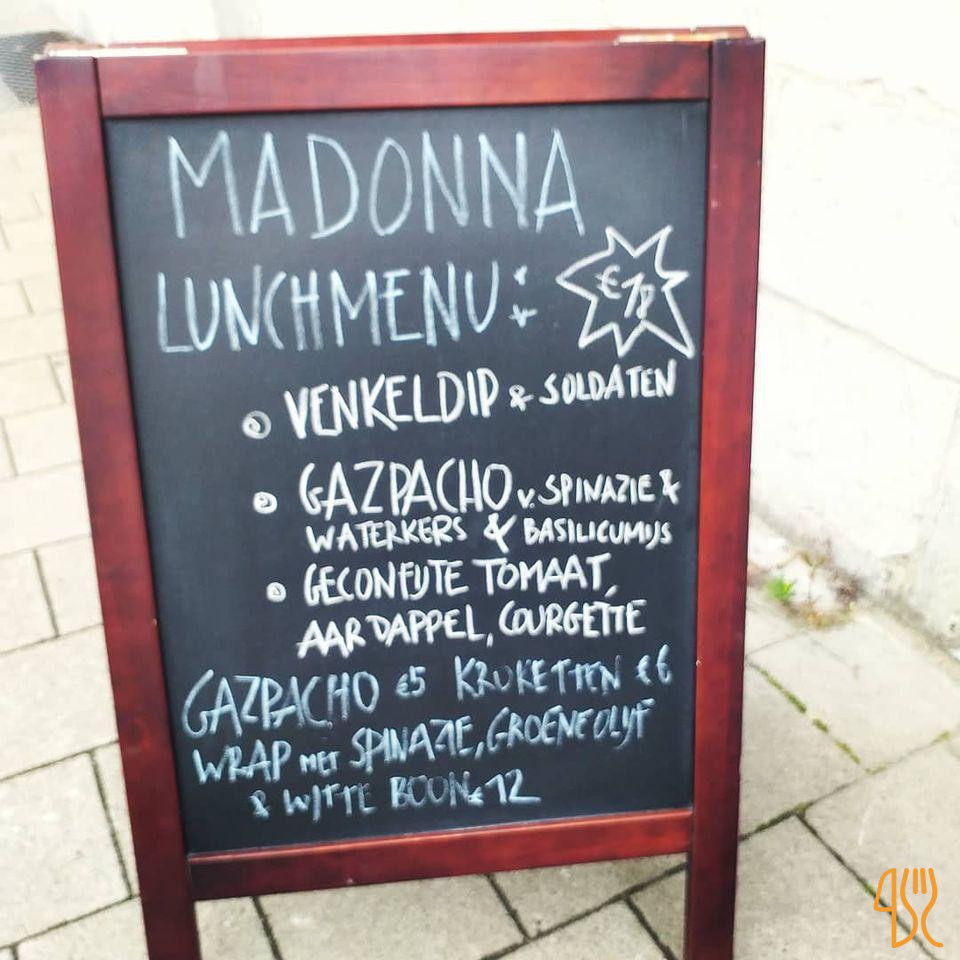 MADONNA
LUNCHMENU:
€18
VENKELDIP & SOLDATEN
GAZPACHO v. SPINAZIE &
WATERKERS & BASILICUMIJS
GECONFIJTE TOMAAT,
AARDAPPEL, COURGETTE
GAZPACHO €5 KROKETTEN €6
WRAP MET SPINAZIE, GROENE OLIJF
& WITTE BOON €12